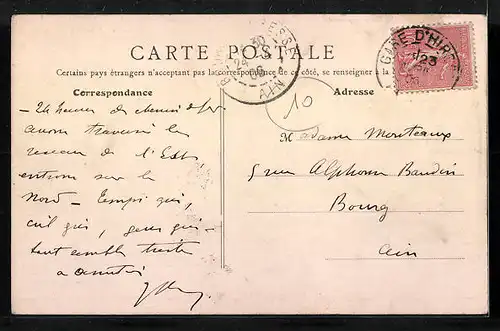 CARTE POSTALE
Certains pays étrangers n'acceptant pas la correspondance de ce côté, se renseigner à la
Correspondance
Adresse
10
GARE D'HIR
AIN
- 24 heures de chemin de fer
avons traversé le
réseau de l'Est
entrons sur le
Nord - Temps gris,
ciel gris, gens gris -
tout semble triste
a
Madame Monteaux
5 rue Alphonse Baudin
Bourg
Ain